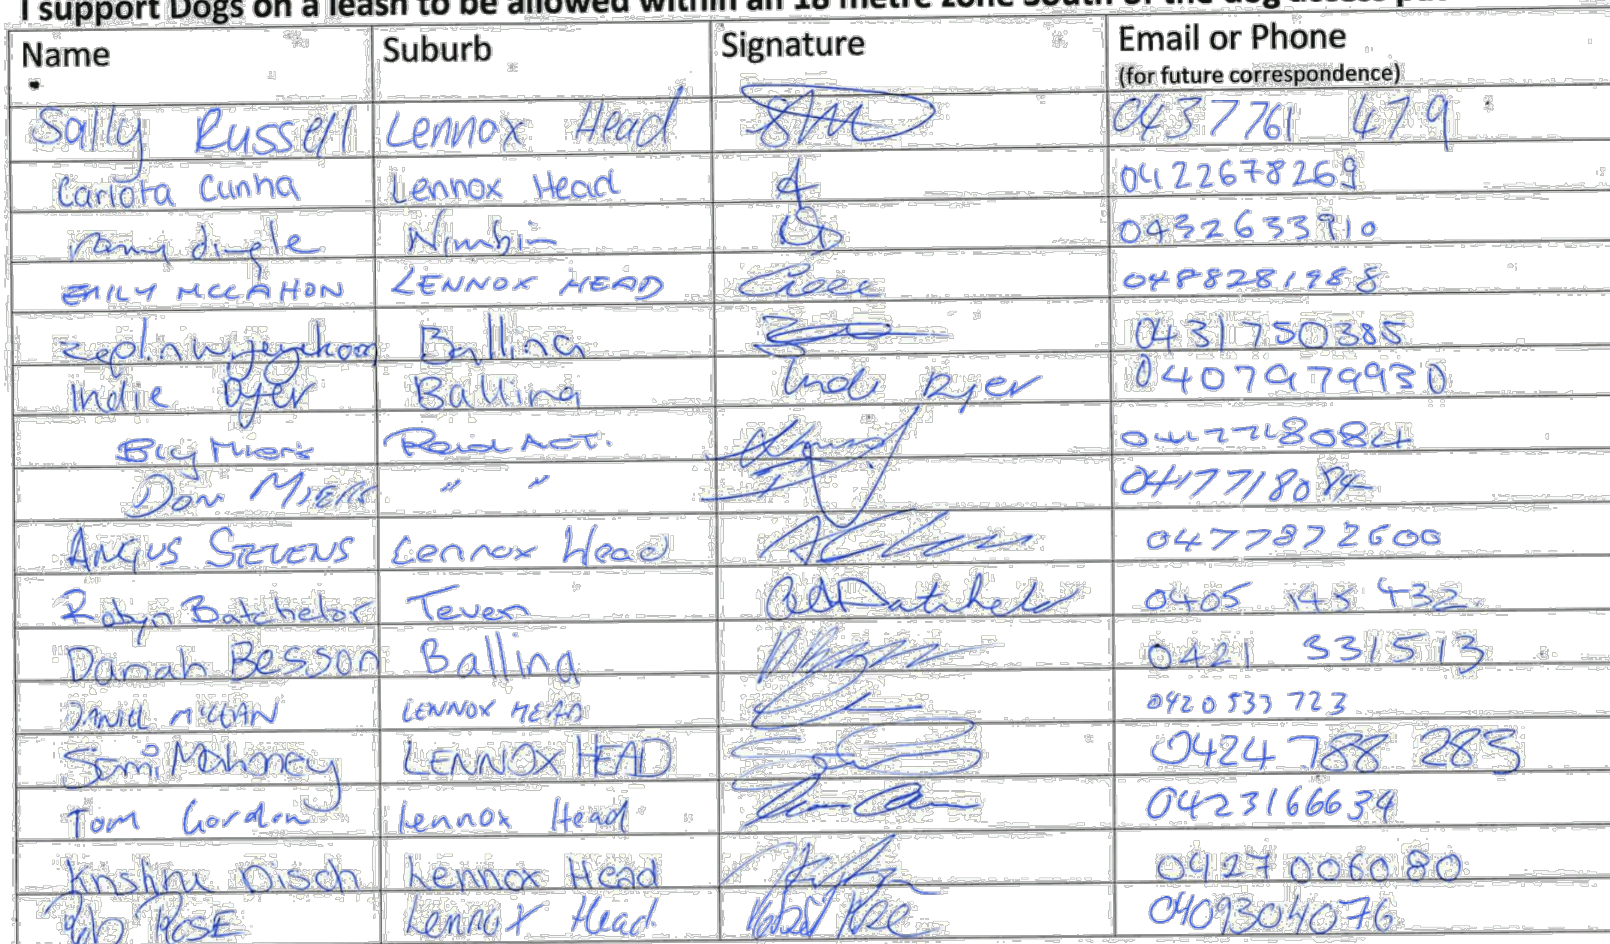 I support Dogs on a leash to be allowed within an 18 metre zone South of the dog access
Name Suburb Signature Email or Phone
(for future correspondence)
Sally Russell Lennox Head 0437761 479
Carlota Cunha Lennox Head 0422678269
dingle Nimbin 0432633910
EMILY MCCAHON LENNOX HEAD 0488281988
Ballina 0431750385
Indie Dyer Ballina Indi Dyer 0407979930
ACT.
Don " " 0417718084
ANGUS STEVENS Lennox Head 0477872600
Robyn Batchelor Teven 0405 145 432
Danah Besson Ballina 0421 331513
LENNOX HEAD 0420 533 723
Mahoney LENNOX HEAD 0424 788 283
Tom Gordon Lennox Head 0423166634
Disch Lennox Head 0427006080
ROSE Lennox Head 0409304076